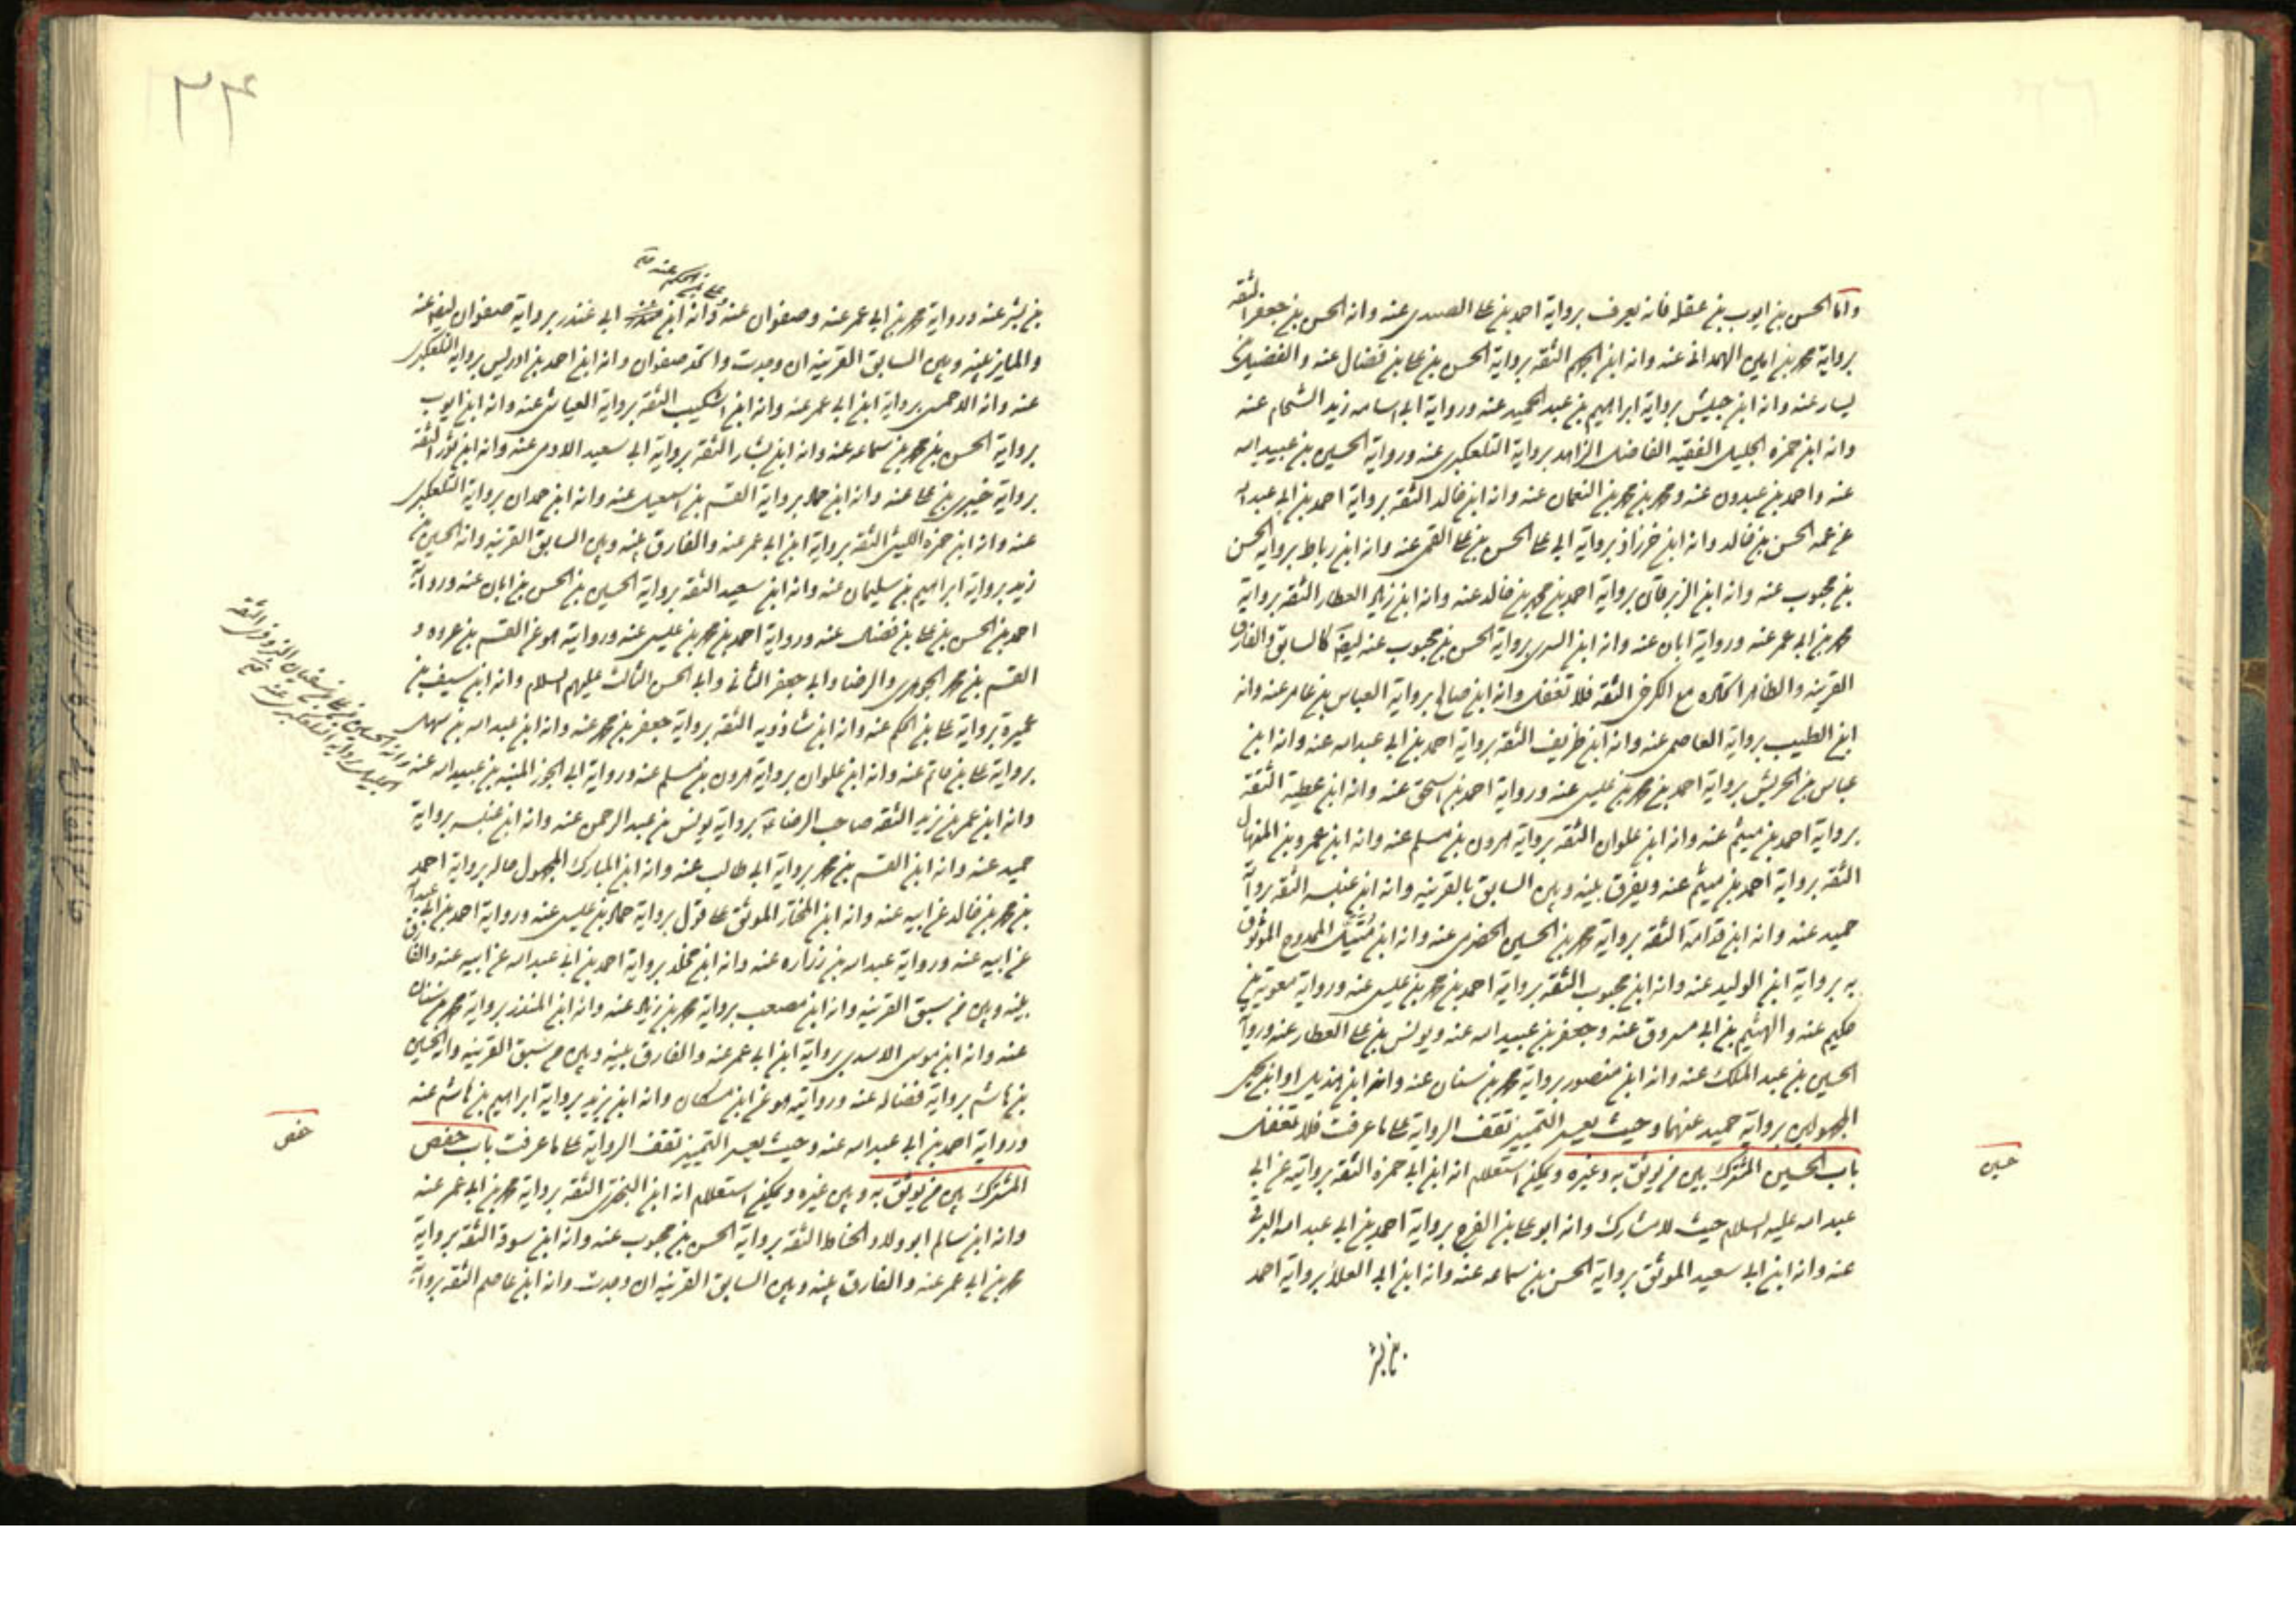 واما الحسن بن ايوب بن عقله فانه يعرف برواية احمد بن علي الصيدي عنه وانه الحسن بن جعفر الثقه
برواية محمد بن امين الهمداني عنه وانه ابن الجهم الثقه برواية الحسن بن علي بن فضال عنه والفضيل بن
يسار عنه وانه ابن حبيش برواية ابراهيم بن عبد الحميد عنه ورواية ابي اسامه زيد الشحام عنه
وانه ابن حمزه الجليل الفقيه الفاضل الزاهد برواية التلعكبري عنه ورواية الحسين بن عبيد الله
عنه واحمد بن عبدون عنه ومحمد بن محمد بن النعمان عنه وانه ابن خالد الثقه برواية احمد بن ابي عبد الله
عن عمه الحسن بن خالد وانه ابن خرزاذ برواية ابي علي الحسن بن علي القمي عنه وانه ابن رباط برواية الحسن
بن محبوب عنه وانه ابن الزبرقان برواية احمد بن محمد بن خالد عنه وانه ابن زياد العطار الثقه برواية
محمد بن ابي عمر عنه ورواية ابان عنه وانه ابن السري برواية الحسن بن محبوب عنه ايضا كالسابق والفارق
القرينه والظاهر اتحاده مع الكرخي الثقه فلا تغفل وانه ابن صالح برواية العباس بن عامر عنه وانه
ابن الطيب برواية العاصمي عنه وانه ابن ظريف الثقه برواية احمد بن ابي عبد الله عنه وانه ابن
عباس بن الحريش برواية احمد بن محمد بن عيسى عنه ورواية احمد بن اسحق عنه وانه ابن عطية الثقة
برواية احمد بن ميثم عنه وانه ابن علوان الثقه برواية هرون بن مسلم عنه وانه ابن عمرو بن المنهال
الثقه برواية احمد بن ميثم عنه ويفرق بينه وبين السابق بالقرينه وانه ابن عنبسه الثقه برواية
حميد عنه وانه ابن قدامة الثقه برواية محمد بن الحسين الحضرمي عنه وانه ابن متيل الممدوح الموثوق
به برواية ابن الوليد عنه وانه ابن محبوب الثقه برواية احمد بن محمد بن عيسى عنه ورواية معوية بن
حكيم عنه والهيثم بن ابي مسروق عنه وجعفر بن عبيد الله عنه ويونس بن علي العطار عنه ورواية
الحسين بن عبد الملك عنه وانه ابن منصور برواية محمد بن سنان عنه وانه ابن هذيل او ابن يحيى
المجهولين برواية حميد عنهما وحيث يعسر التمييز تقف الرواية علي ما عرفت فلا تغفل
باب الحسين المشترك بين من يوثق به وغيره ويمكن استعلام انه ابن ابي حمزه الثقه بروايته عن ابي
عبد الله عليه السلام حيث لا مشارك وانه ابو علي بن الفرج برواية احمد بن ابي عبد الله البرقي
عنه وانه ابن ابي سعيد الموثق برواية الحسن بن سماعه عنه وانه ابن ابي العلا برواية احمد
بن بشر
حسين
٢٤
علي بن الحكم عنه
بن بشر عنه ورواية محمد بن ابي عمر عنه وصفوان عنه وانه ابن ابي غندر برواية صفوان ايضا عنه
والمايز بينه وبين السابق القرينه ان وجدت واتحد صفوان وانه ابن احمد بن ادريس برواية التلعكبري
عنه وانه الاحمسي برواية ابن ابي عمر عنه وانه ابن اشكيب الثقه برواية العياشي عنه وانه ابن ايوب
برواية الحسن بن محمد بن سماعه عنه وانه ابن بشار الثقه برواية ابي سعيد الادمي عنه وانه ابن ثور الثقة
برواية خيبري بن علي عنه وانه ابن حماد برواية القسم بن اسمعيل عنه وانه ابن حمدان برواية التلعكبري
عنه وانه ابن حمزه الليثي الثقه برواية ابن ابي عمر عنه والفارق بينه وبين السابق القرينه وانه الحسين بن
زيد برواية ابراهيم بن سليمان عنه وانه ابن سعيد الثقه برواية الحسين بن الحسن بن ابان عنه ورواية
احمد بن الحسن بن علي بن فضل عنه ورواية احمد بن محمد بن عيسى عنه وروايته هو عن القسم بن عروه و
القسم بن محمد الجوهري والرضا وابي جعفر الثاني وابي الحسن الثالث عليهم السلام وانه ابن سيف بن
عميرة برواية علي بن الحكم عنه وانه ابن شاذويه الثقه برواية جعفر بن محمد عنه وانه ابن عبد الله بن سهل
برواية علي بن حاتم عنه وانه ابن علوان برواية هرون بن مسلم عنه ورواية ابي الجوز المنبه بن عبيد الله عنه
وانه الحسين بن علي بن سفيان البزوفري الثقه
الجليل برواية التلعكبري عنه
وانه ابن عمر بن يزيد الثقه صاحب الرضا برواية يونس بن عبد الرحمن عنه وانه ابن عنبسه برواية
حميد عنه وانه ابن القسم بن محمد برواية ابي طالب عنه وانه ابن المبارك المجهول حاله برواية احمد
بن محمد بن خالد عن ابيه عنه وانه ابن المختار الموثق علي قول برواية حماد بن عيسى عنه ورواية احمد بن ابي عبد الله
عن ابيه عنه ورواية عبد الله بن زراره عنه وانه ابن مخلد برواية احمد بن ابي عبد الله عن ابيه عنه والفارق
بينه وبين من سبق القرينه وانه ابن مصعب برواية محمد بن زياد عنه وانه ابن المنذر برواية محمد بن سنان
عنه وانه ابن موسى الاسدي برواية ابن ابي عمر عنه والفارق بينه وبين من سبق القرينه وانه الحسين
بن هاشم برواية فضاله عنه وروايته هو عن ابن مسكان وانه ابن يزيد برواية ابراهيم بن هاشم عنه
ورواية احمد بن ابي عبد الله عنه وحيث يعسر التمييز تقف الرواية علي ما عرفت باب حفص
المشترك بين من يوثق به وبين غيره ويمكن استعلام انه ابن البختري الثقه برواية محمد بن ابي عمر عنه
وانه ابن سالم ابو ولاد الحناط الثقه برواية الحسن بن محبوب عنه وانه ابن سوقة الثقه برواية
محمد بن ابي عمر عنه والفارق بينه وبين السابق القرينه ان وجدت وانه ابن عاصم الثقه برواية
حفص